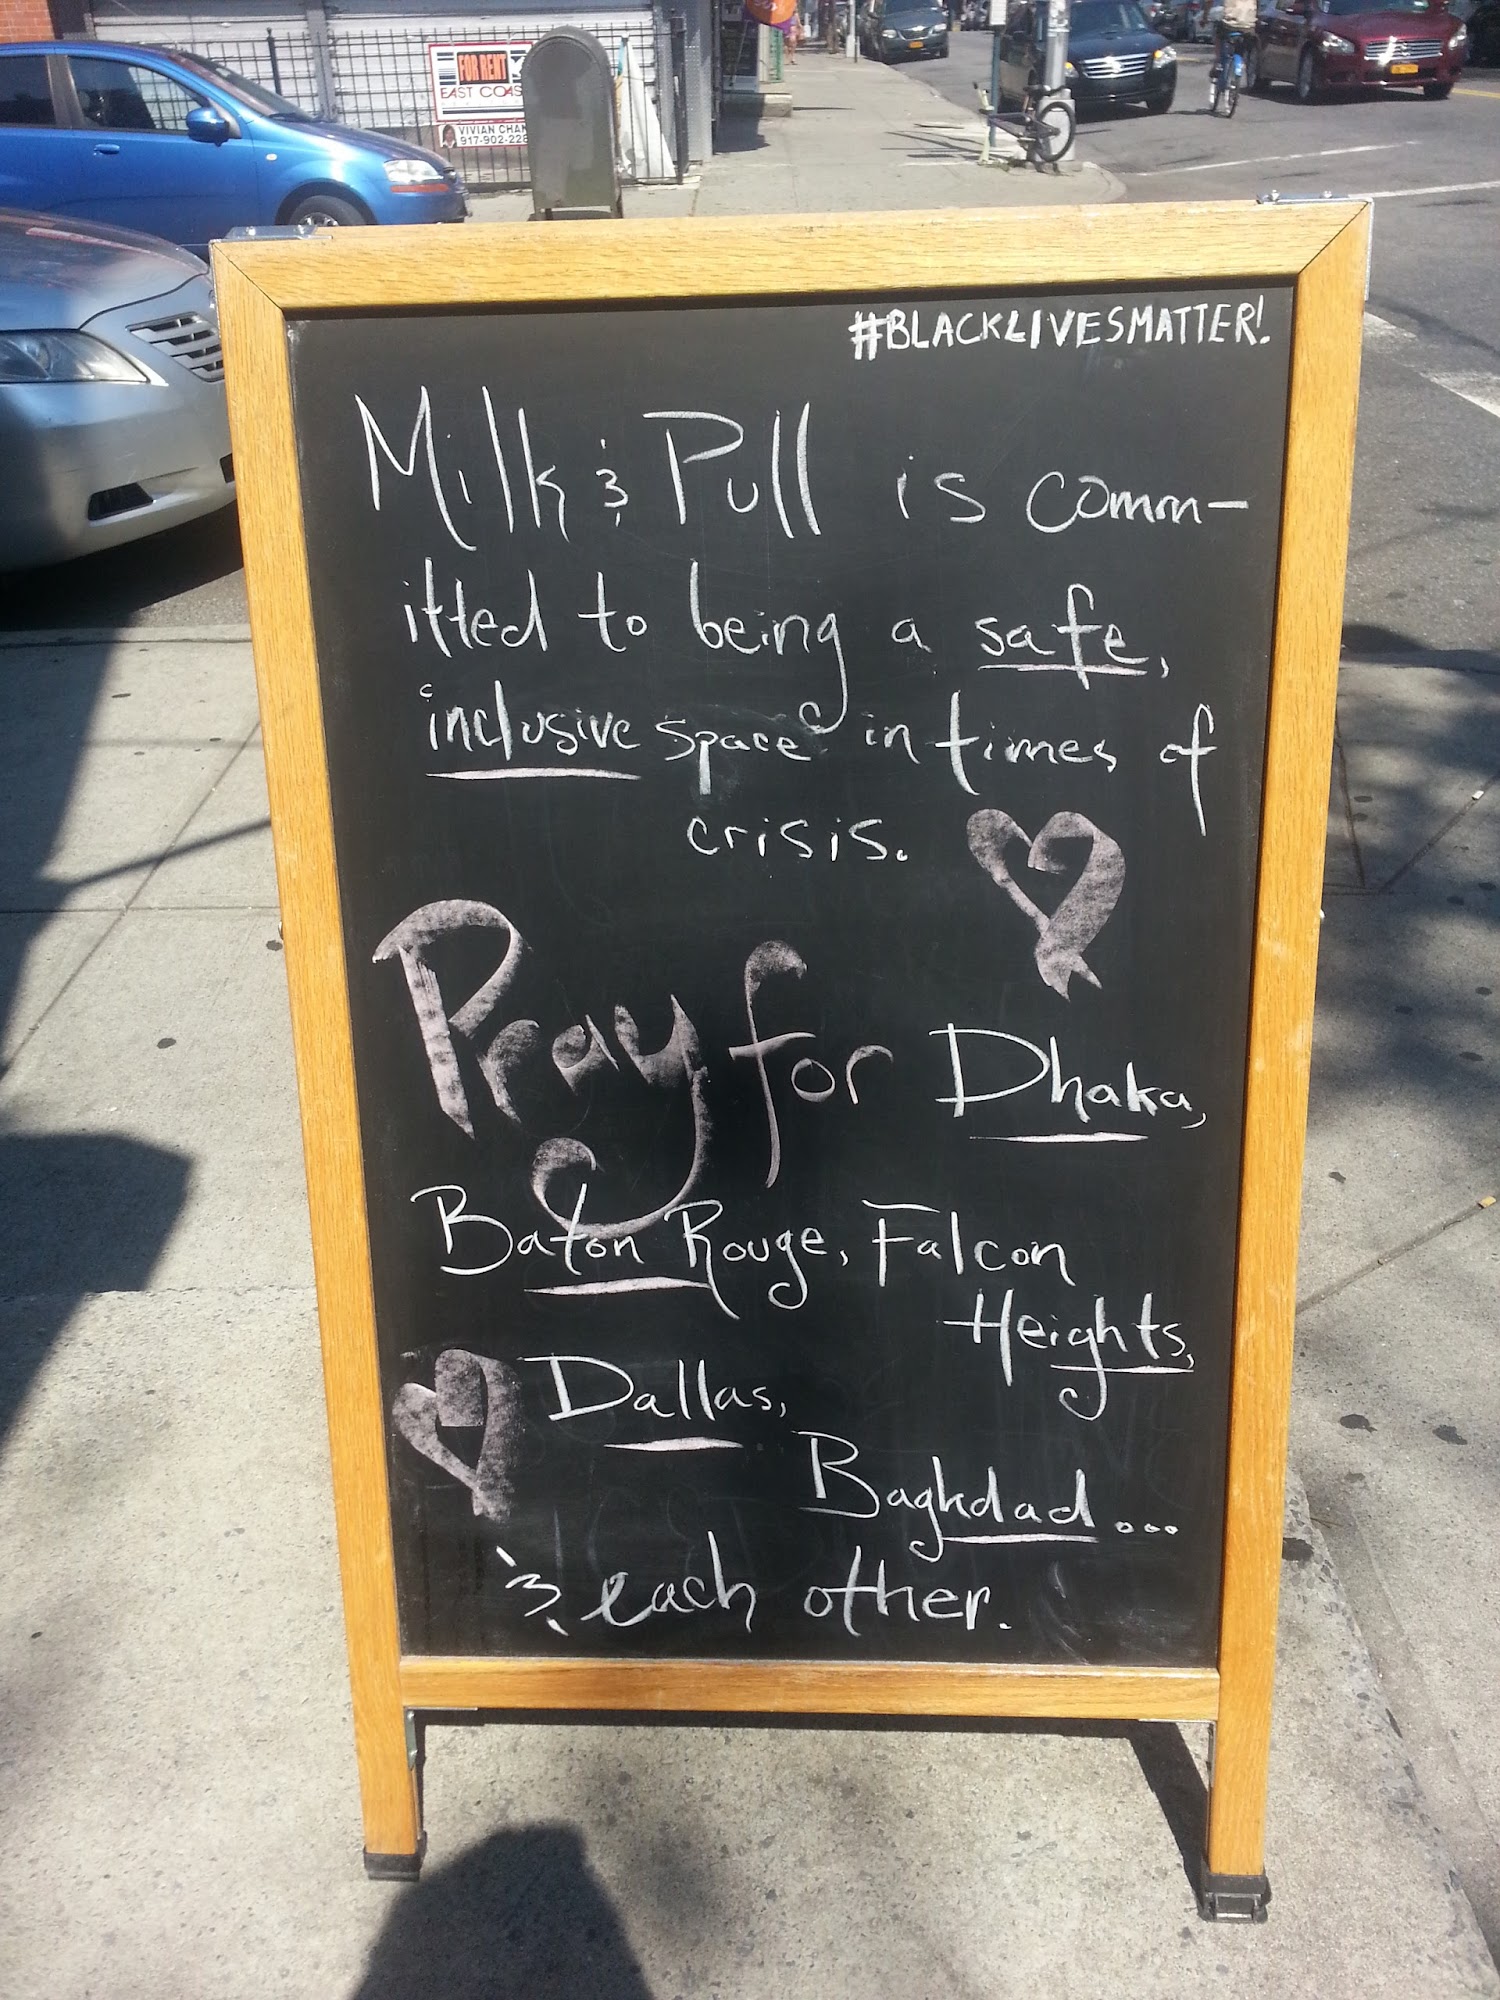 FOR RENT
EAST COAS
VIVIAN CHAN
917-902-228
#BLACKLIVESMATTER!
Milk & Pull is comm-
itted to being a safe,
inclusive space in times of
crisis.
Pray for Dhaka,
Baton Rouge, Falcon
Heights,
Dallas,
Baghdad...
& each other.